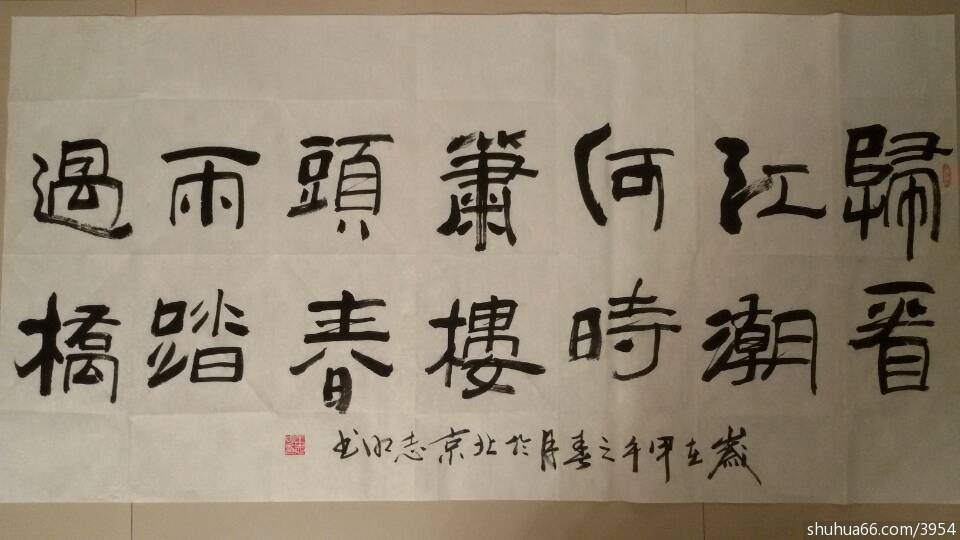 歸看
江潮
何時
簫樓
頭春
雨踏
過橋
歲在甲午之春月於北京志书
shuhua66.com/3954